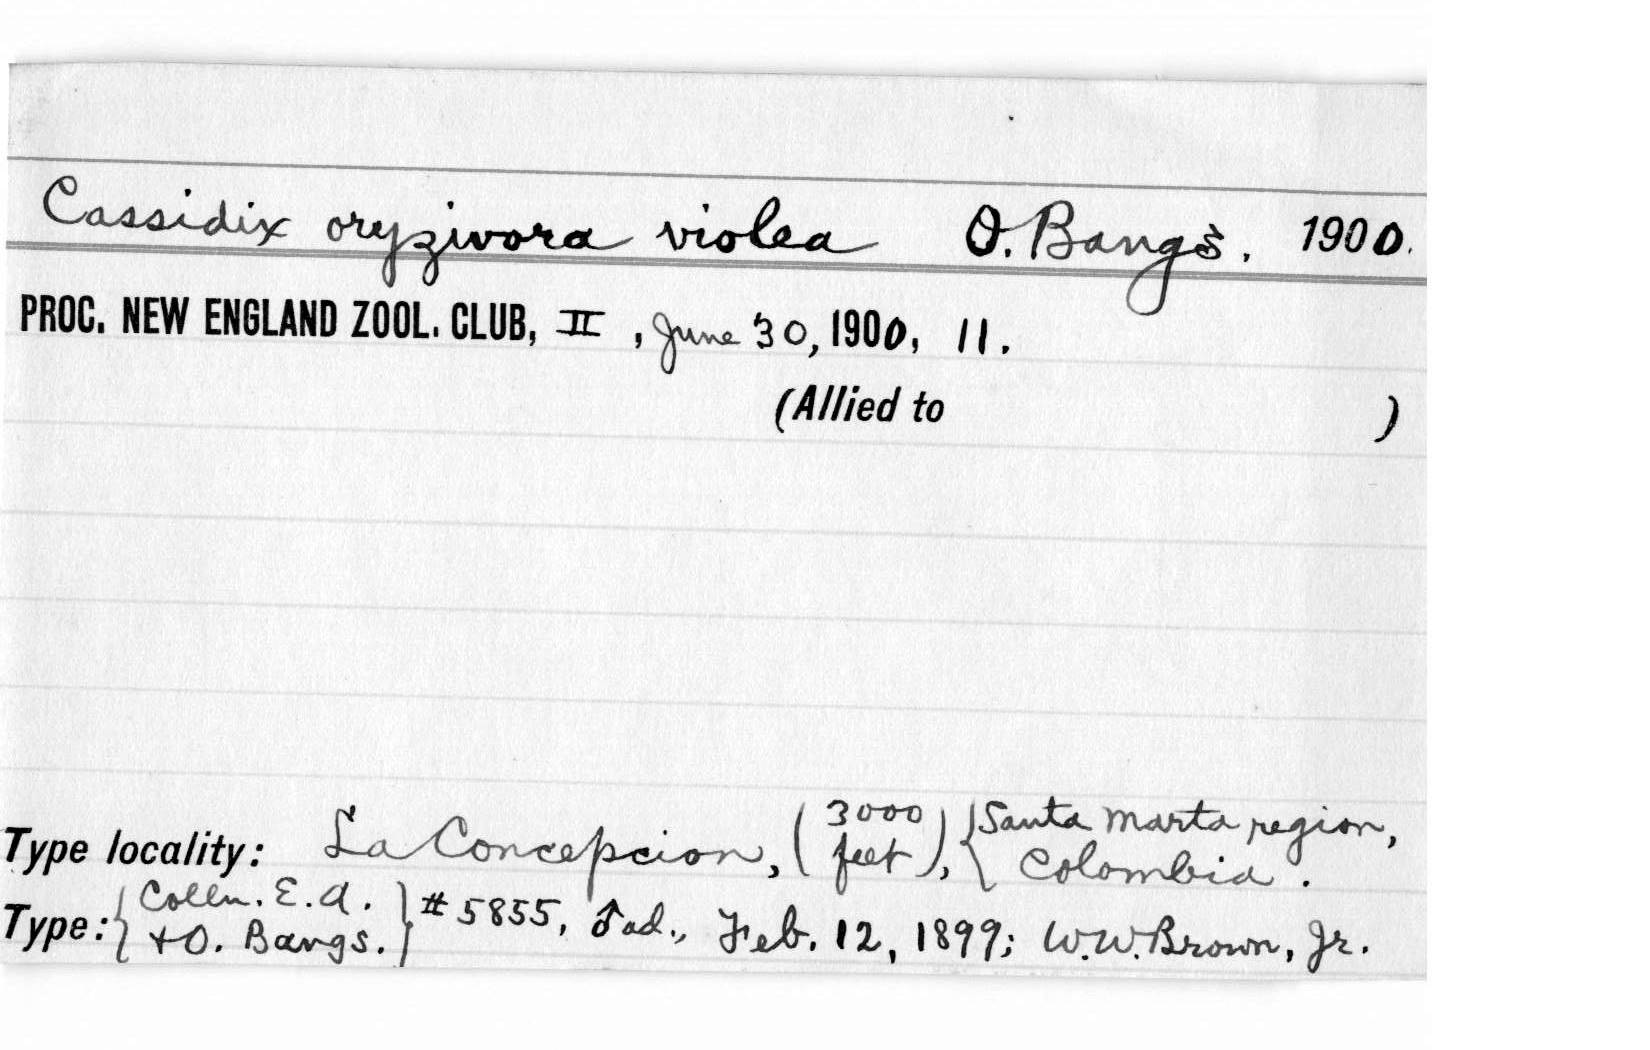 Cassidix oryzivora violea O. Bangs, 1900.
PROC. NEW ENGLAND ZOOL. CLUB, II, June 30, 1900, 11.
(Allied to )
Type locality: La Concepcion, (3000 feet), {Santa Marta region, Colombia.
Type: {Colln. E.A. + O. Bangs.} #5855, ♂ ad., Feb. 12, 1899; W.W. Brown, Jr.